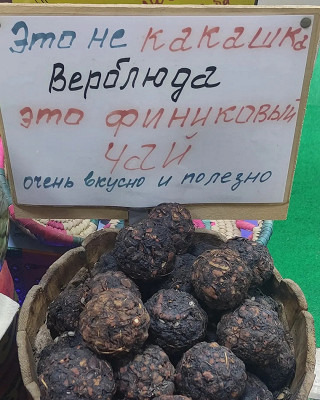 Это не какашка
Верблюда
это финиковый
чай
очень вкусно и полезно